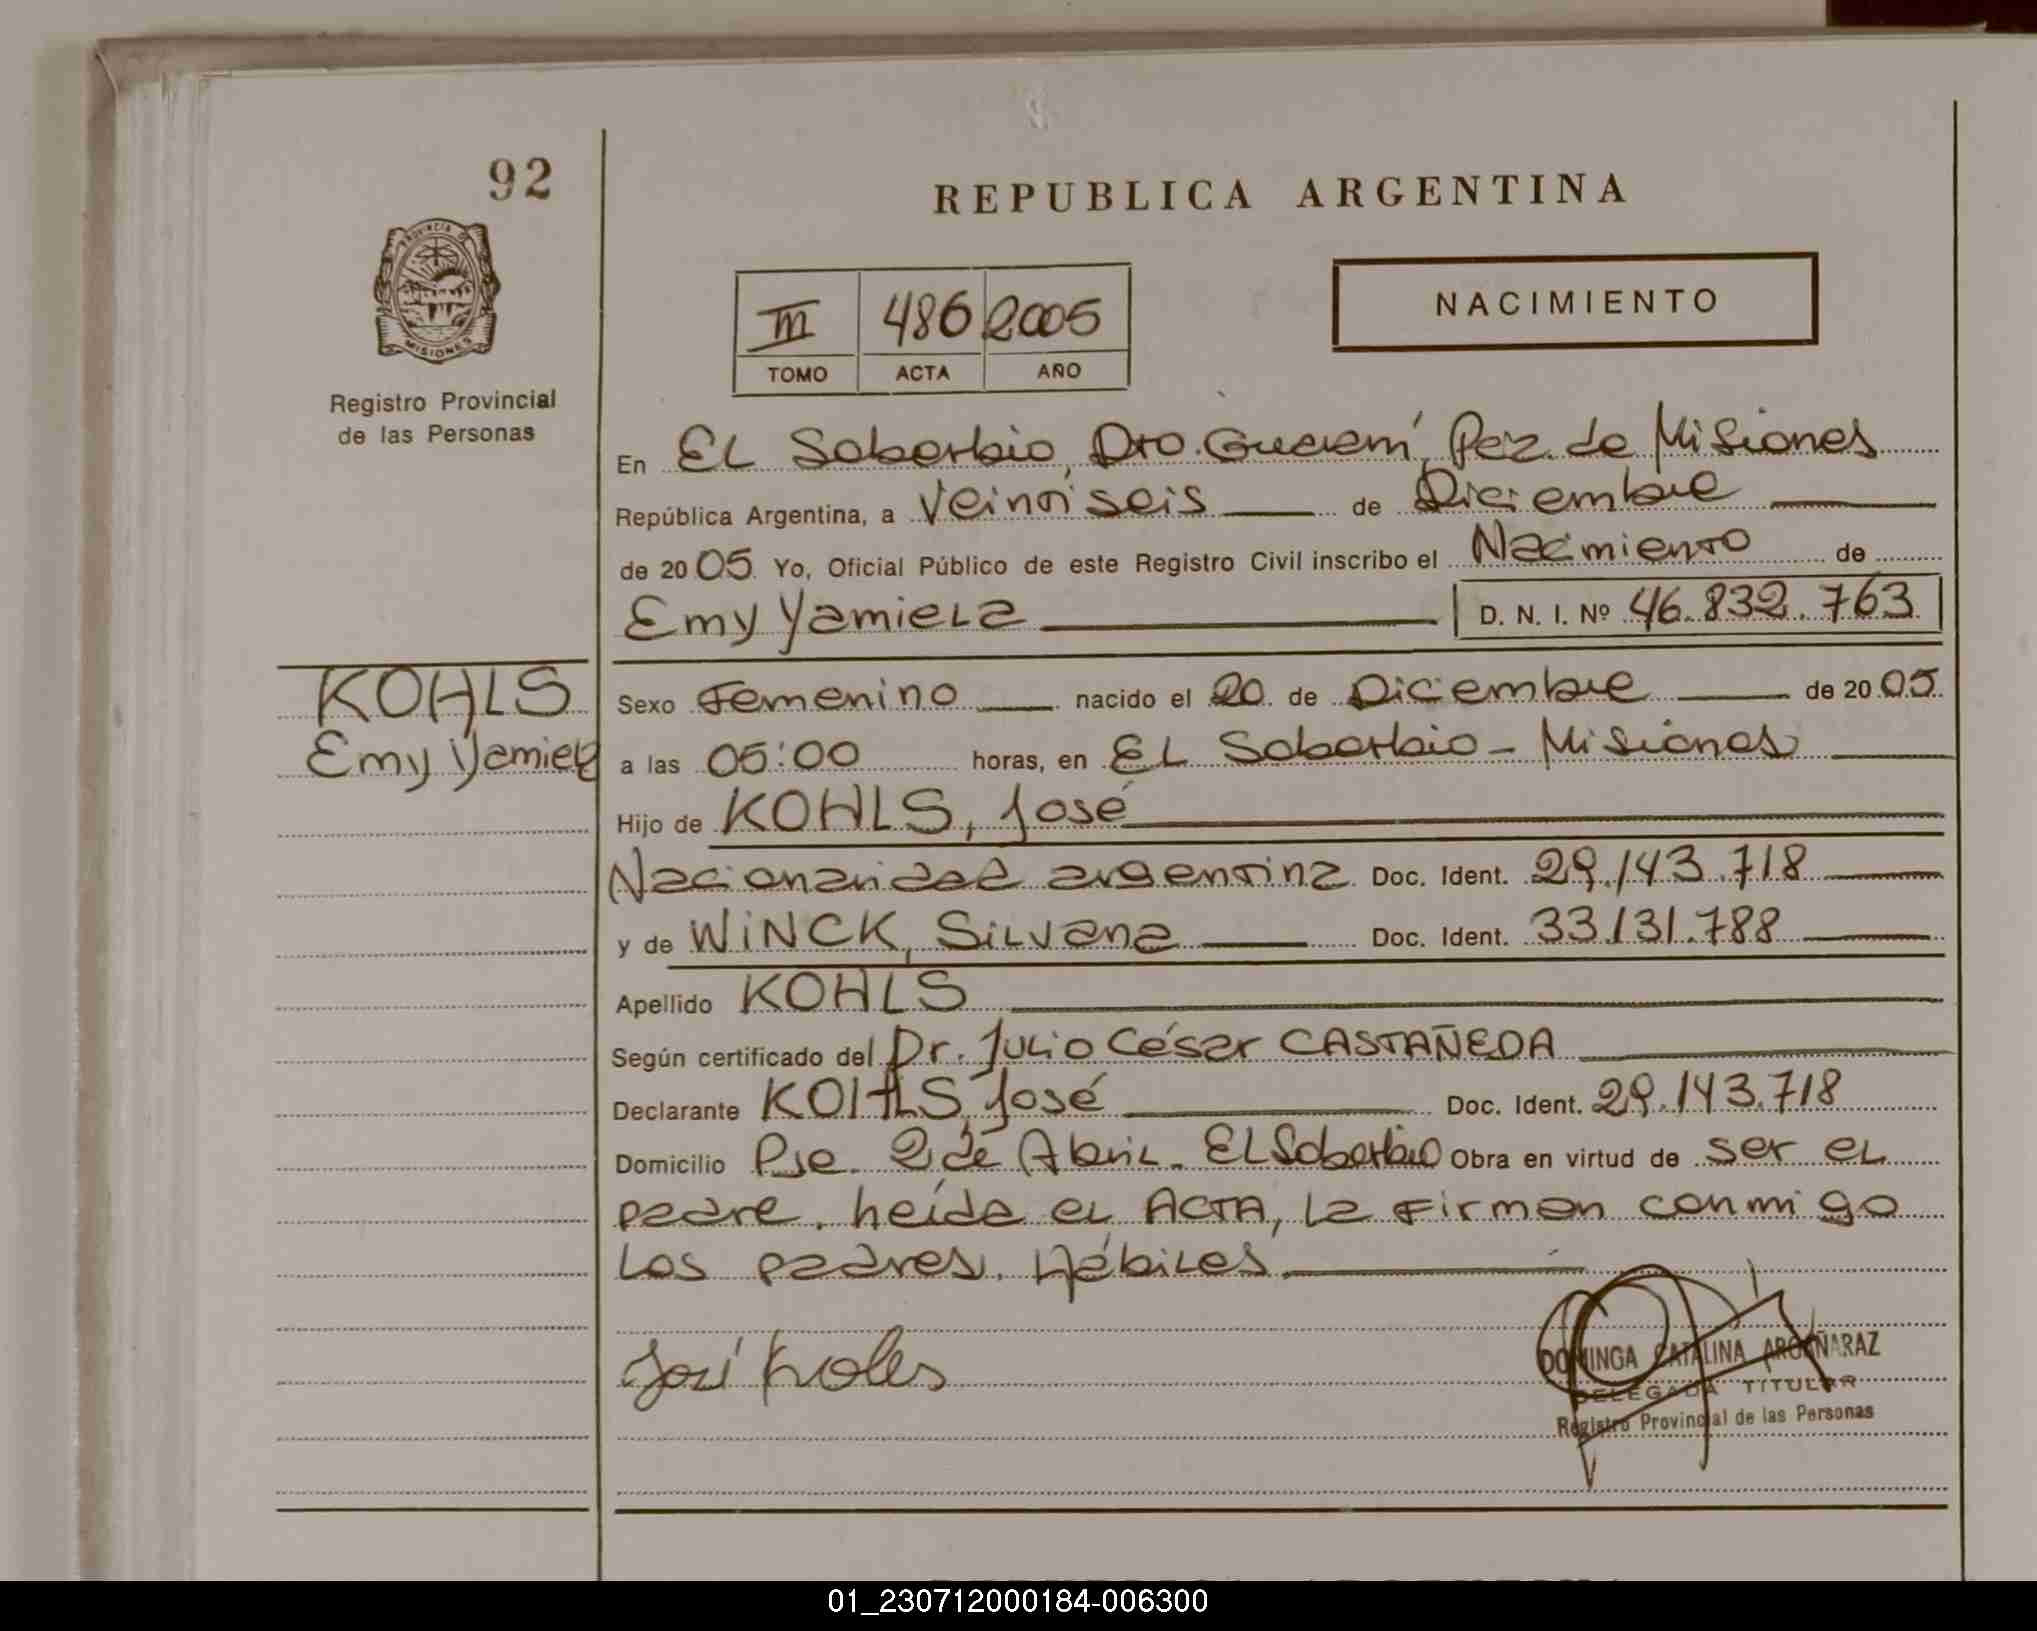 92
REPUBLICA ARGENTINA
PROVINCIA DE
MISIONES
Registro Provincial
de las Personas
NACIMIENTO
III 486 2005
TOMO ACTA AÑO
En EL Soberbio, Dto. Guaraní, Pcia. de Misiones
República Argentina, a Veintiseis de Diciembre
de 2005 Yo, Oficial Público de este Registro Civil inscribo el Nacimiento de
Emy Yamiela D. N. I. Nº 46.832.763
KOHLS
Emy Yamiela
Sexo Femenino nacido el 20 de Diciembre de 2005
a las 05:00 horas, en EL Soberbio - Misiones
Hijo de KOHLS, José
Nacionalidad argentina Doc. Ident. 29.143.718
y de WiNCK, Silvana Doc. Ident. 33.131.788
Apellido KOHLS
Según certificado del Dr. Julio César CASTAÑEDA
Declarante KOHLS, José Doc. Ident. 29.143.718
Domicilio 2 de Abril - EL Soberbio Obra en virtud de ser el
padre. Leída el ACTA, la firman conmigo
los padres. Hábiles
José
DOMINGA CATALINA ARGAÑARAZ
DELEGADA TITULAR
Registro Provincial de las Personas
01_230712000184-006300